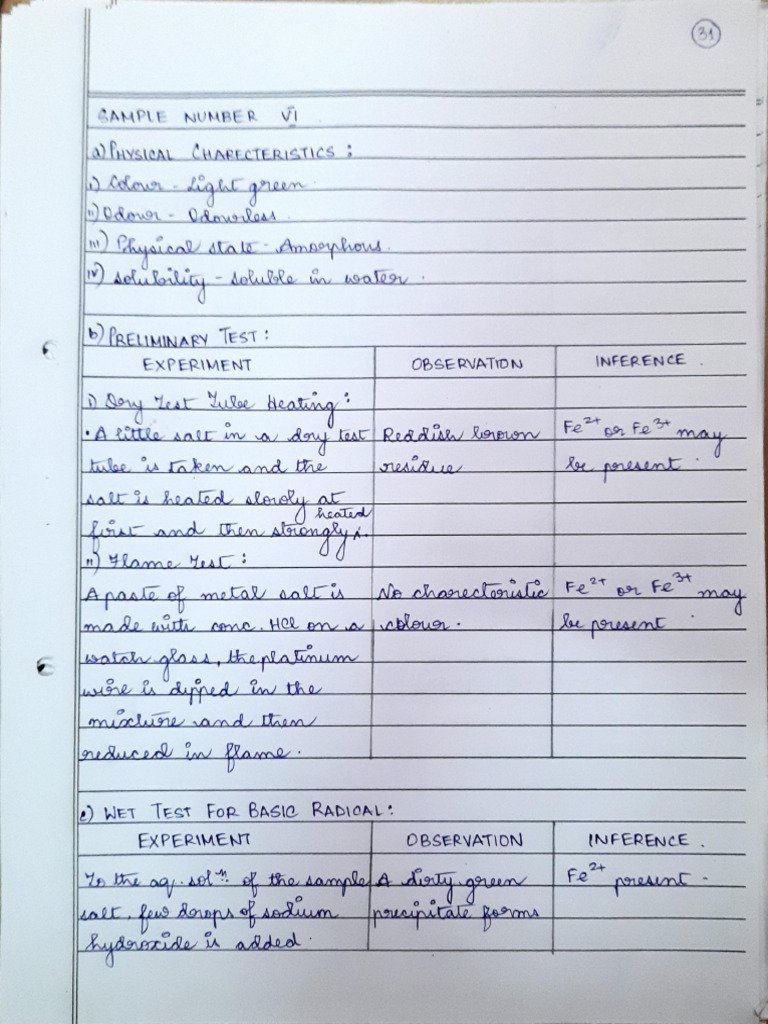 31
SAMPLE NUMBER VI
a) PHYSICAL CHARECTERISTICS :
i) Colour - Light green.
ii) Odour - Odourless.
iii) Physical state - Amorphous.
iv) solubility - soluble in water.
b) PRELIMINARY TEST :
EXPERIMENT OBSERVATION INFERENCE.
i) Dry Test Tube Heating :
• A little salt in a dry test Reddish brown Fe2+ or Fe3+ may
tube is taken and the residue be present.
salt is heated slowly at
heated
first and then strongly.
ii) Flame Test :
A paste of metal salt is No charecteristic Fe2+ or Fe3+ may
made with conc. HCl on a colour. be present.
watch glass, the platinum
wire is dipped in the
mixture and then
reduced in flame.
c) WET TEST FOR BASIC RADICAL :
EXPERIMENT OBSERVATION INFERENCE.
To the aq. solⁿ. of the sample A dirty green Fe2+ present.
salt, few drops of sodium precipitate forms
hydroxide is added.